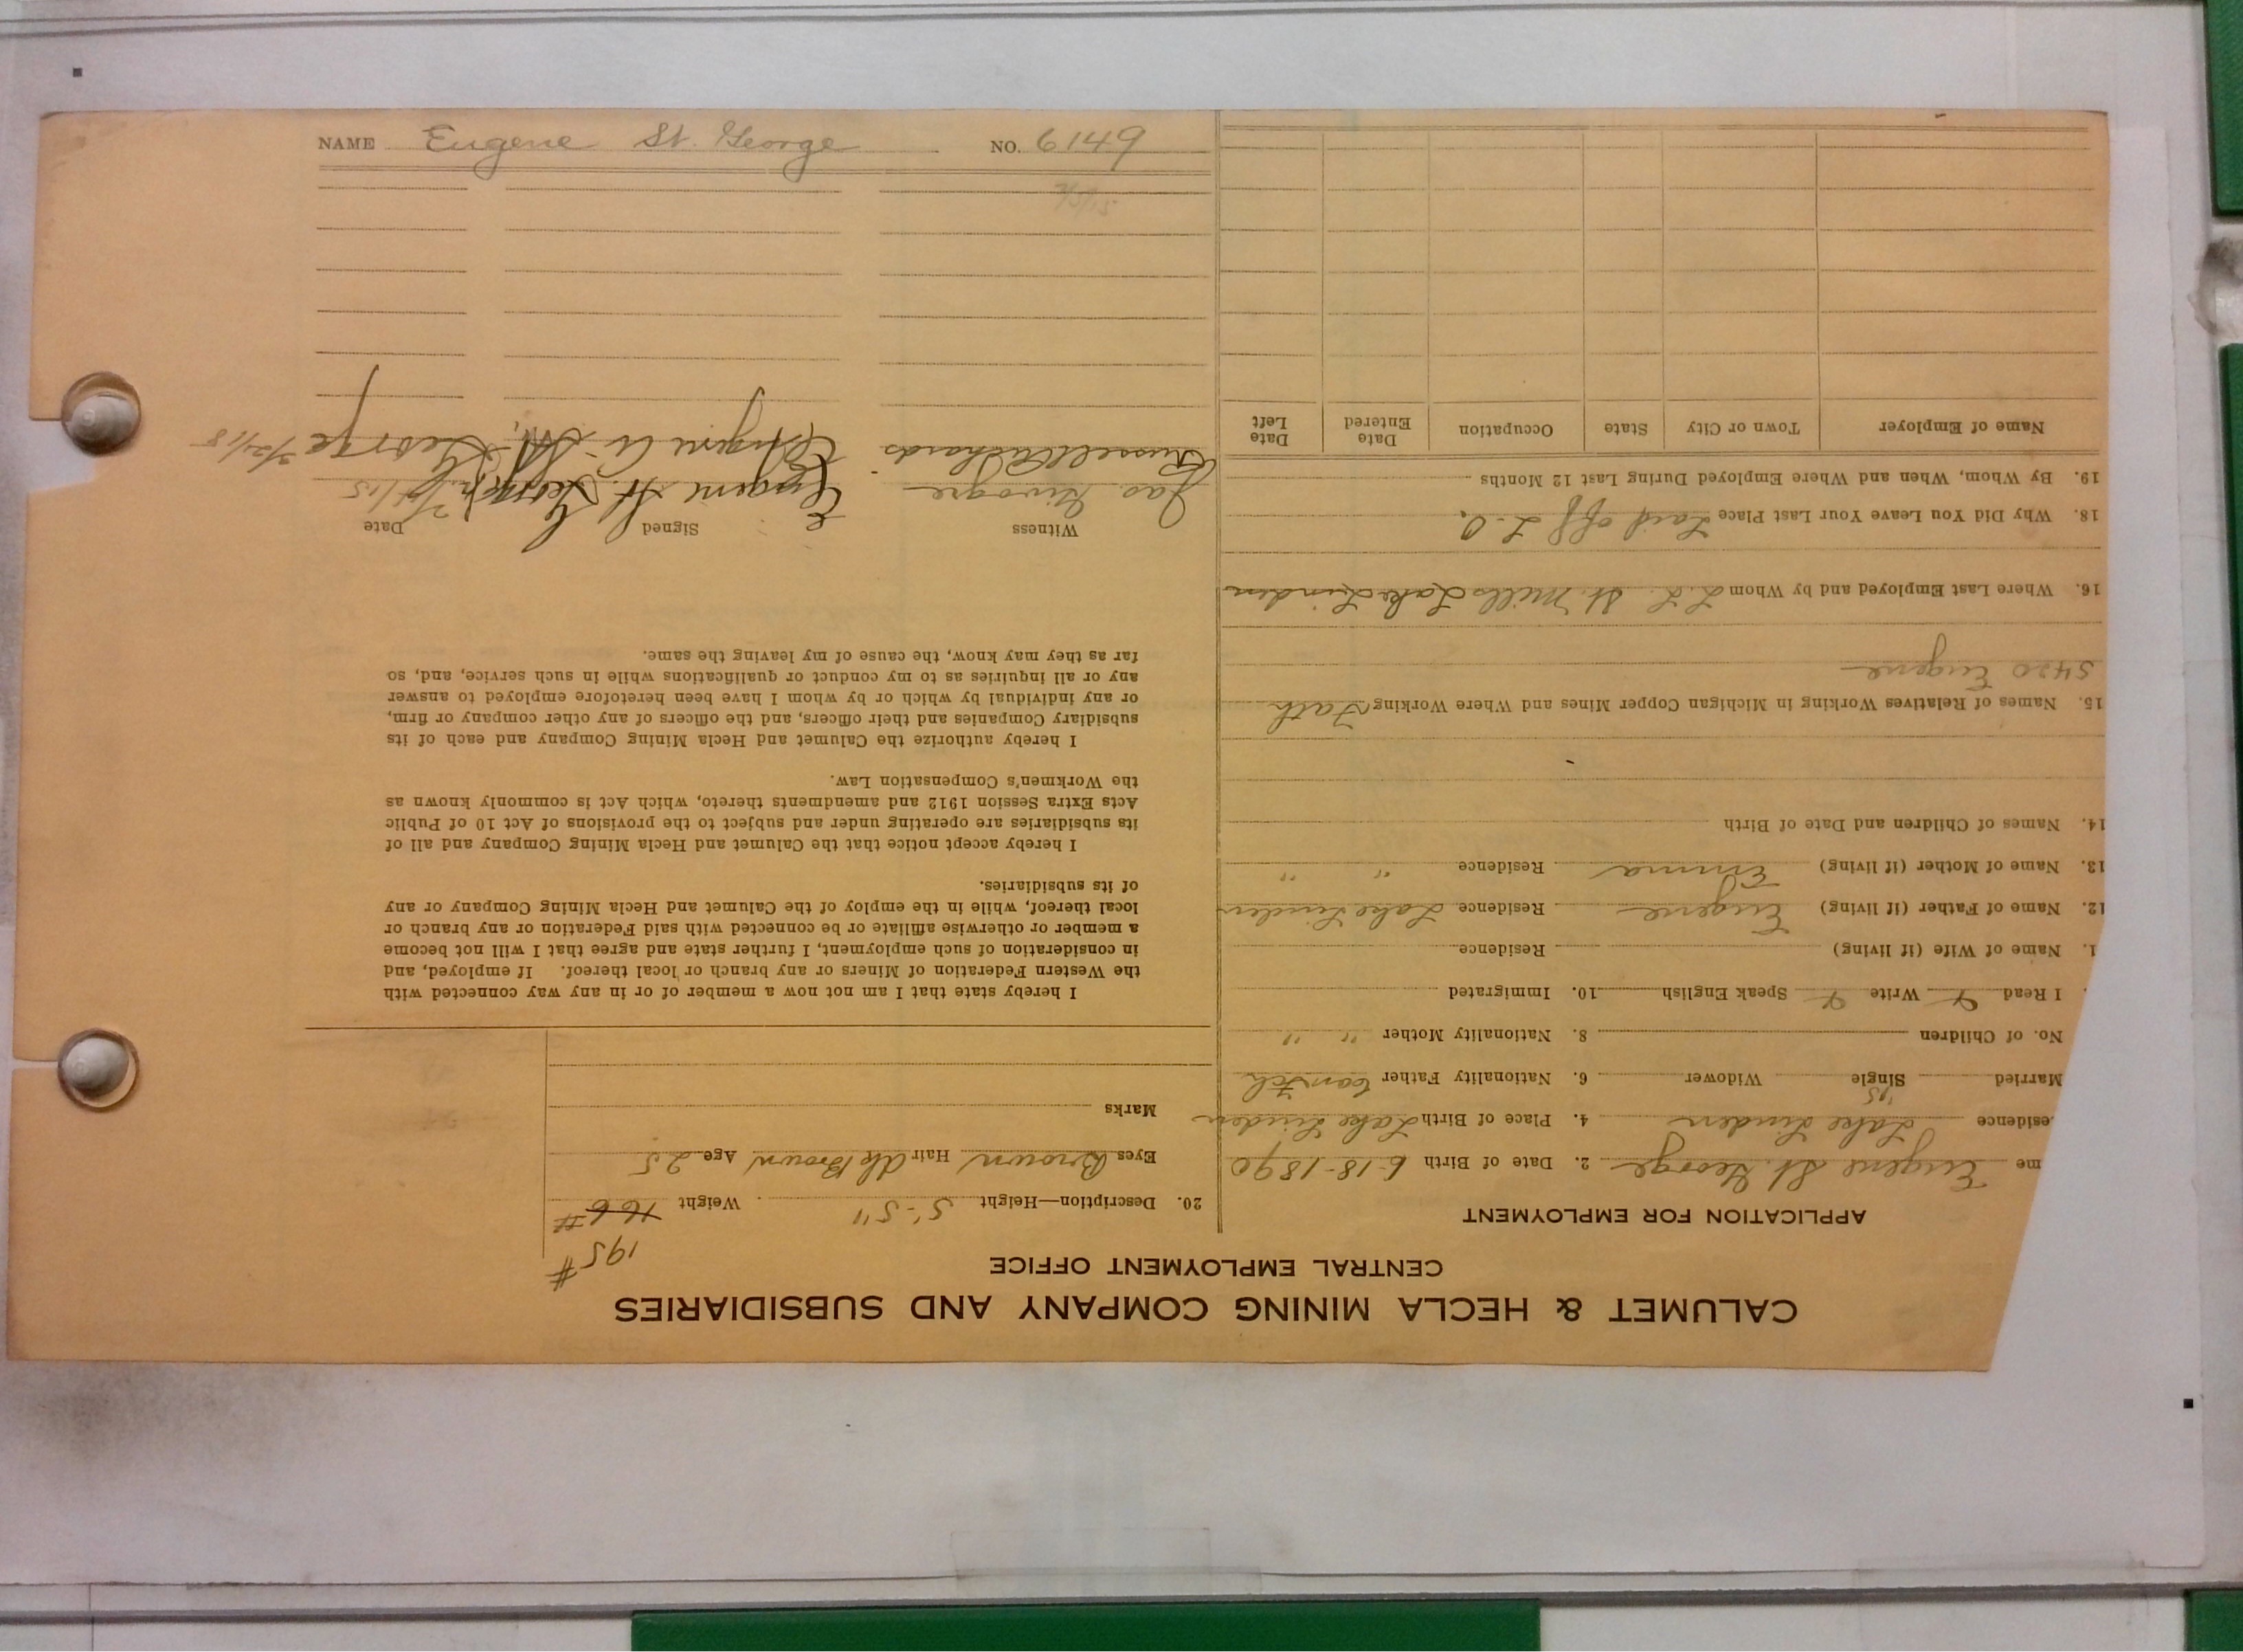 CALUMET & HECLA MINING COMPANY AND SUBSIDIARIES
CENTRAL EMPLOYMENT OFFICE
APPLICATION FOR EMPLOYMENT
me Eugene St. George 2. Date of Birth 6-18-1890
esidence Lake Linden 4. Place of Birth Lake Linden
Married Single Widower 6. Nationality Father
No. of Children 8. Nationality Mother " "
I Read Write Speak English 10. Immigrated
1. Name of Wife (if living) Residence
12. Name of Father (if living) Eugene Residence Lake Linden
13. Name of Mother (if living) Emma Residence " "
14. Names of Children and Date of Birth
15. Names of Relatives Working in Michigan Copper Mines and Where Working Fath
5420 Eugene
16. Where Last Employed and by Whom L. L. St. Mills Lake Linden
18. Why Did You Leave Your Last Place Laid off
19. By Whom, When and Where Employed During Last 12 Months
Name of Employer Town or City State Occupation Date Entered Date Left
195 #
20. Description—Height 5'-5" Weight 166 #
Eyes Brown Hair Dk Brown Age 25
Marks
I hereby state that I am not now a member of or in any way connected with
the Western Federation of Miners or any branch or local thereof. If employed, and
in consideration of such employment, I further state and agree that I will not become
a member or otherwise affiliate or be connected with said Federation or any branch or
local thereof, while in the employ of the Calumet and Hecla Mining Company or any
of its subsidiaries.
I hereby accept notice that the Calumet and Hecla Mining Company and all of
its subsidiaries are operating under and subject to the provisions of Act 10 of Public
Acts Extra Session 1912 and amendments thereto, which Act is commonly known as
the Workmen's Compensation Law.
I hereby authorize the Calumet and Hecla Mining Company and each of its
subsidiary Companies and their officers, and the officers of any other company or firm,
or any individual by which or by whom I have been heretofore employed to answer
any or all inquiries as to my conduct or qualifications while in such service, and, so
far as they may know, the cause of my leaving the same.
Witness Signed Date
Jas Eugene St. George
Russell Richards Eugene W. St. George
NAME Eugene St. George NO. 6149